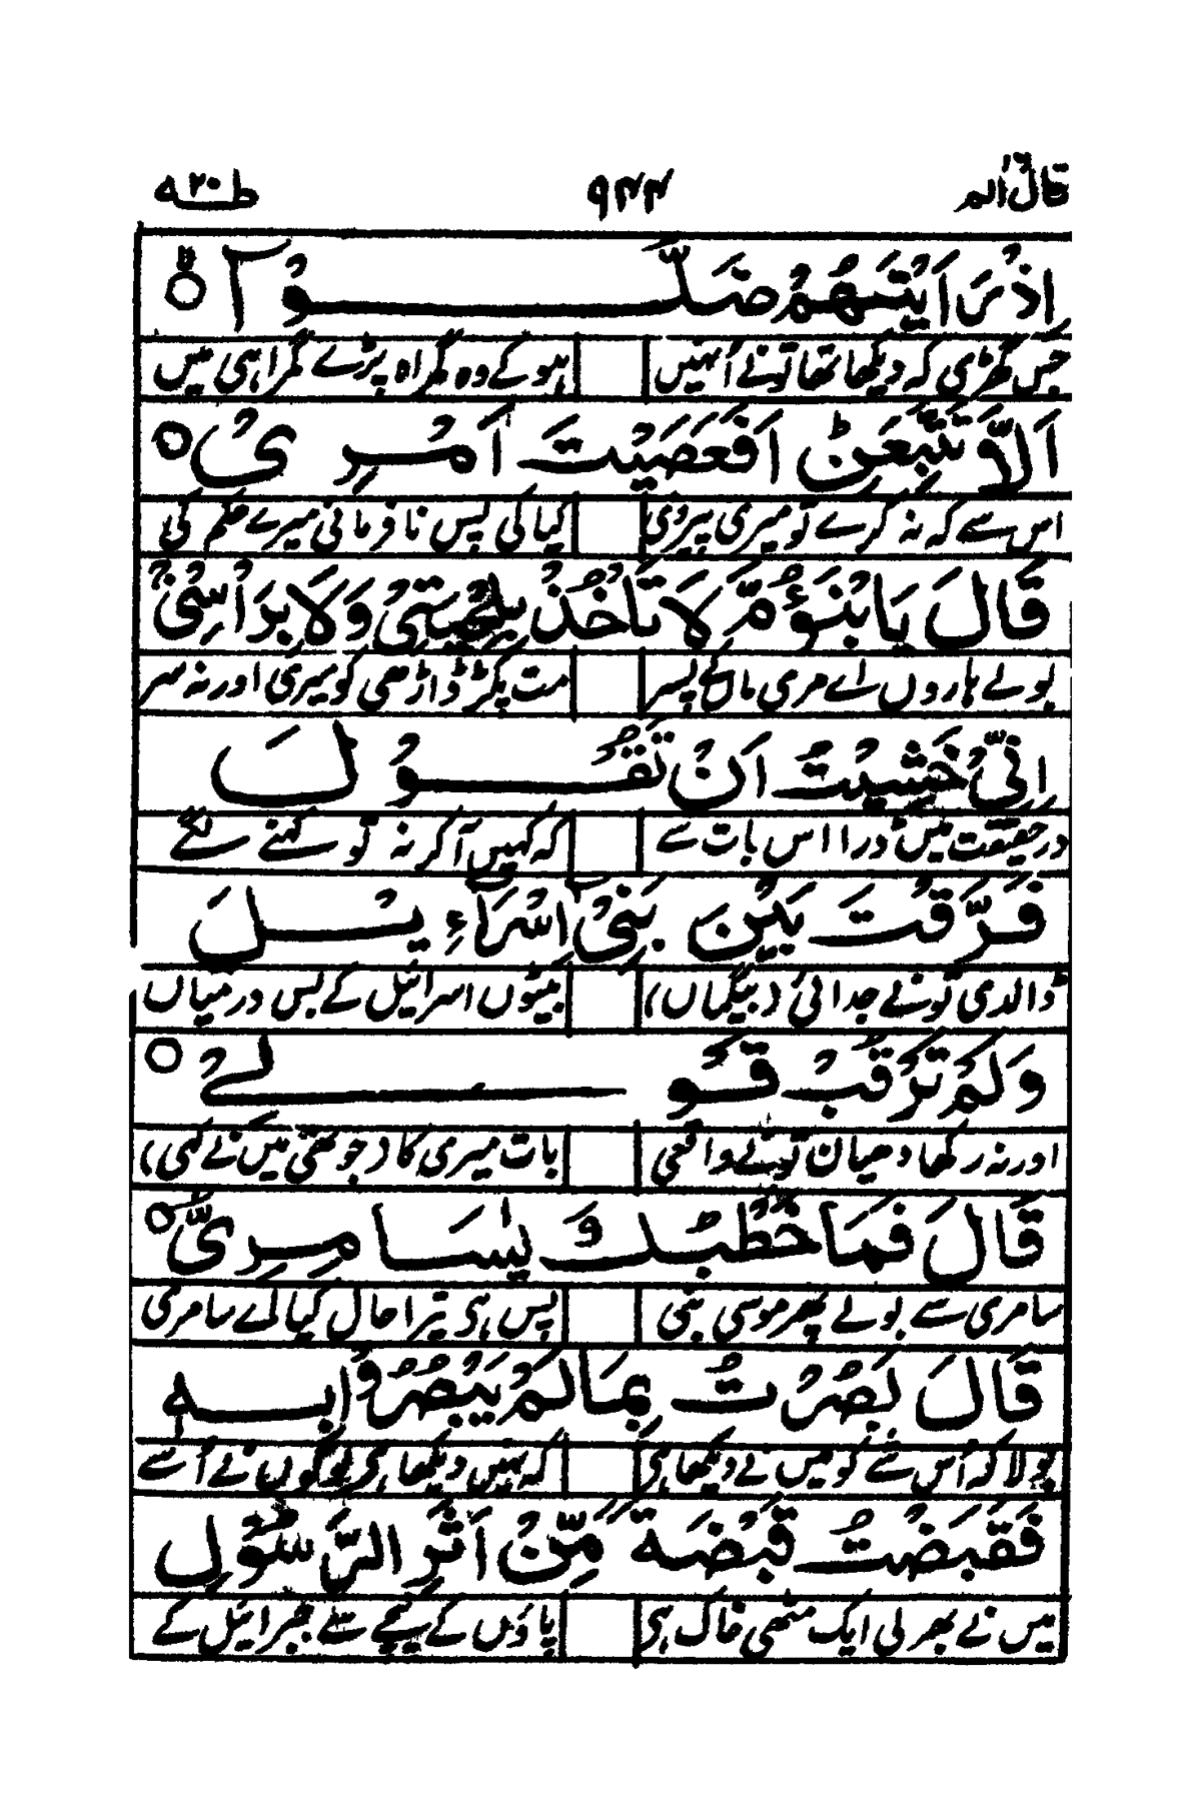 قال الم ۹۴۴ طٰهٰ ۲۰
اِذْ رَاَيْتَهُمْ ضَلُّوْآ ○
جس گھڑی کہ دیکھا تھا تونے اُنہیں ہو کے وہ گمراہ پڑے گمراہی میں
اَلَّا تَتَّبِعَنِ اَفَعَصَيْتَ اَمْرِىْ ○
اس سے کہ نہ کرے تو میری پیروی کیا کی پس نا فرمانی میرے حکم کی
قَالَ يَابْنَؤُمَّ لَا تَاْخُذْ بِلِحْيَتِىْ وَلَا بِرَاْسِىْ
بولے ہاروں اے مری ماں کے پسر مت پکڑ ڈاڑھی کو میری اور نہ سر
اِنِّىْ خَشِيْتُ اَنْ تَقُوْلَ
در حقیقت میں ڈرا اس بات سے کہ کہیں آکر نہ تو کہنے لگے
فَرَّقْتَ بَيْنَ بَنِىْٓ اِسْرَآءِيْلَ
ڈالدی تونے جدائی (بیگماں) بیٹوں اسرائیل کے بس درمیاں
وَلَمْ تَرْقُبْ قَوْلِىْ ○
اور نہ رکھا دھیان تونے واقعی بات میری کا (جو تھی میں نے کہی)
قَالَ فَمَا خَطْبُكَ يٰسَامِرِىُّ ○
سامری سے بولے پھر موسی نبی پس ہی تیرا حال کیا اے سامری
قَالَ بَصُرْتُ بِمَا لَمْ يَبْصُرُوْا بِهٖ
بولا کہ اُس شے کو میں نے دیکھا ہی کہ نہیں دیکھا ہی لوگوں نے اُسے
فَقَبَضْتُ قَبْضَةً مِّنْ اَثَرِ الرَّسُوْلِ
میں نے بھر لی ایک مٹھی خاک ہی پاؤں کے نیچے سے جبرائیل کے